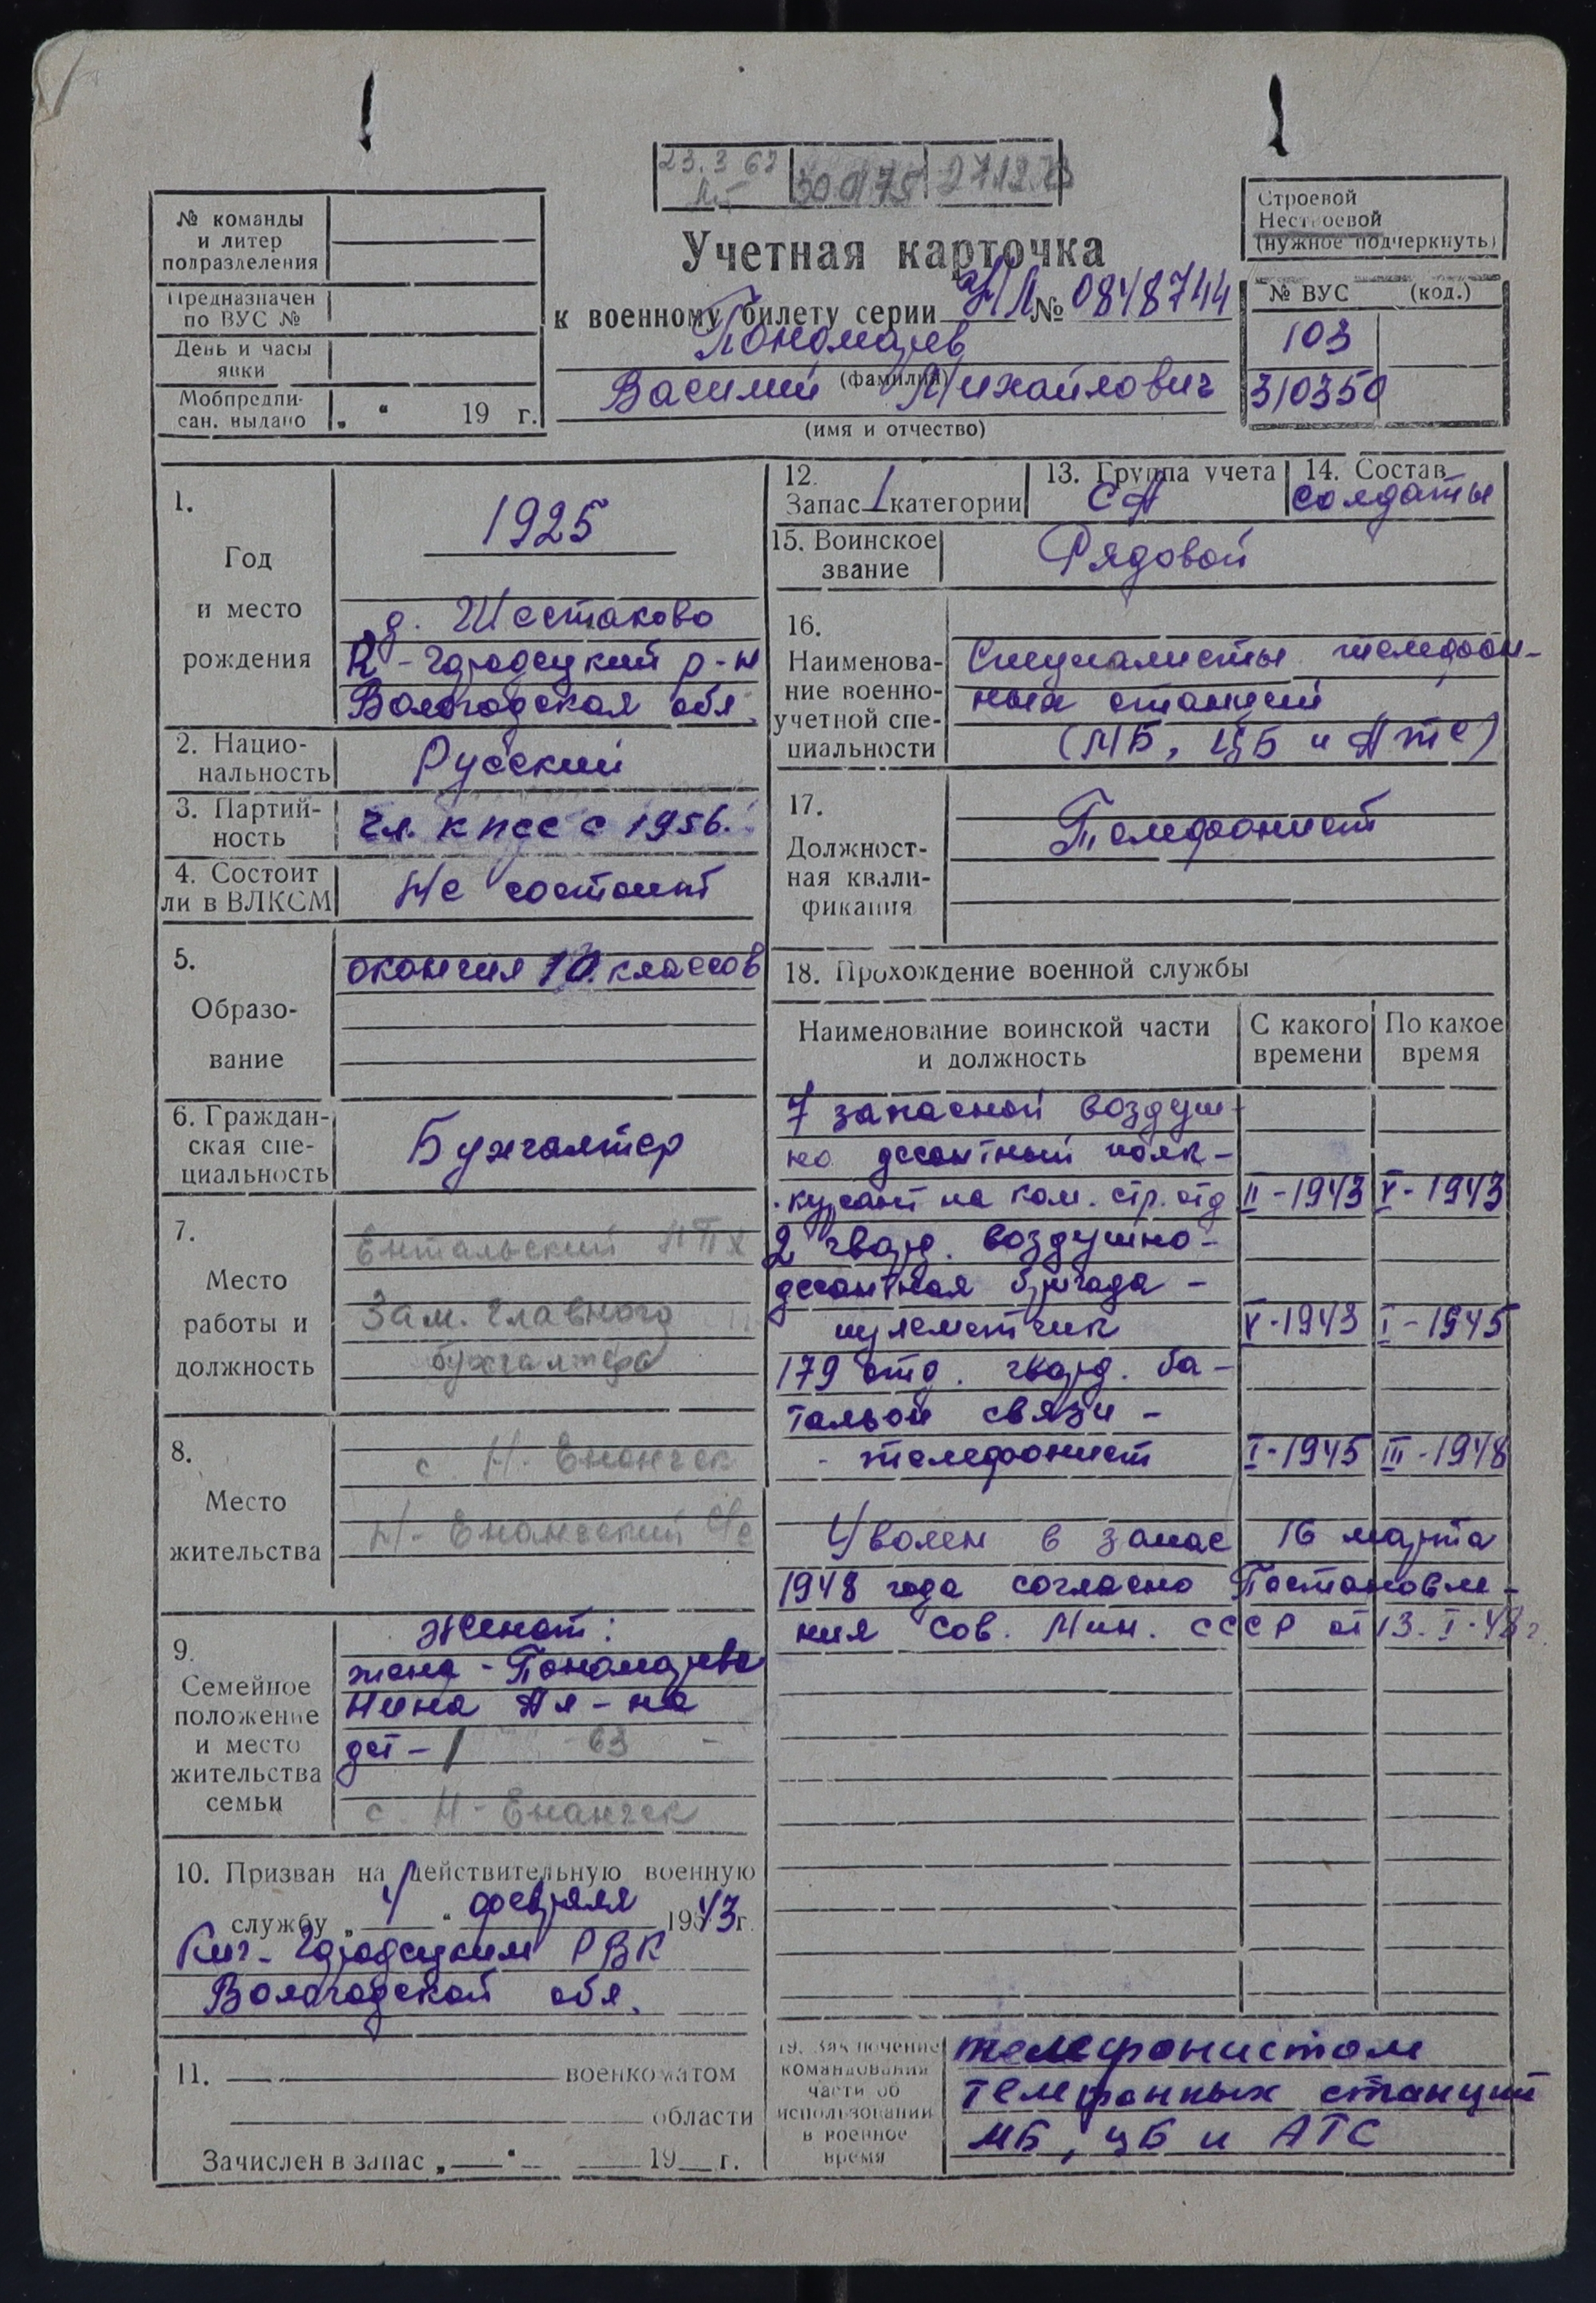 23.3 67
30 01 75
27.12.73
№ команды
и литер
подразделения
Предназначен
по ВУС №
День и часы
явки
Мобпредпи-
сан. выдано „ “ 19 г.
Строевой
Нестроевой
(нужное подчеркнуть)
Учетная карточка
к военному билету серии НЛ № 0848744
Пономарев
(фамилия)
Василий Михайлович
(имя и отчество)
№ ВУС (код.)
103
310350
1.
Год
и место
рождения
1925
д. Шестаково
К-Городецкий р-н
Вологодская обл.
2. Нацио-
нальность
Русский
3. Партий-
ность
Чл. КПСС с 1956.
4. Состоит
ли в ВЛКСМ
Не состоит
5.
Образо-
вание
окончил 10 классов
6. Граждан-
ская спе-
циальность
Бухгалтер
7.
Место
работы и
должность
Ентальский ЛПХ
Зам. главного
бухгалтера
8.
Место
жительства
с. Н-Енангск
Н-Енангский с/с
9.
Семейное
положение
и место
жительства
семьи
Женат:
жена - Пономарева
Нина Ал-на
дет - 1 63 -
с. Н-Енангск
10. Призван на действительную военную
службу „ 4 “ февраля 1943 г.
Кич-Городецким РВК
Вологодской обл.
11. военкоматом
области
Зачислен в запас „ “ 19 г.
12.
Запас 1 категории
13. Группа учета
СА
14. Состав
солдаты
15. Воинское
звание
Рядовой
16.
Наименова-
ние военно-
учетной спе-
циальности
Специалисты телефон-
ных станций
(МБ, ЦБ и АТС)
17.
Должност-
ная квали-
фикация
Телефонист
18. Прохождение военной службы
Наименование воинской части
и должность
С какого
времени
По какое
время
7 запасной воздуш-
но десантный полк-
курсант на ком. стр. отд II-1943 V-1943
2 гвард. воздушно-
десантная бригада -
пулеметчик V-1943 I-1945
179 отд. гвард. ба-
тальон связи -
- телефонист I-1945 III-1948
Уволен в запас 16 марта
1948 года согласно Постановле-
ния Сов. Мин. СССР от 13.I.48 г.
19. Заключение
командования
части об
использовании
в военное
время
телефонистом
телефонных станций
МБ, ЦБ и АТС